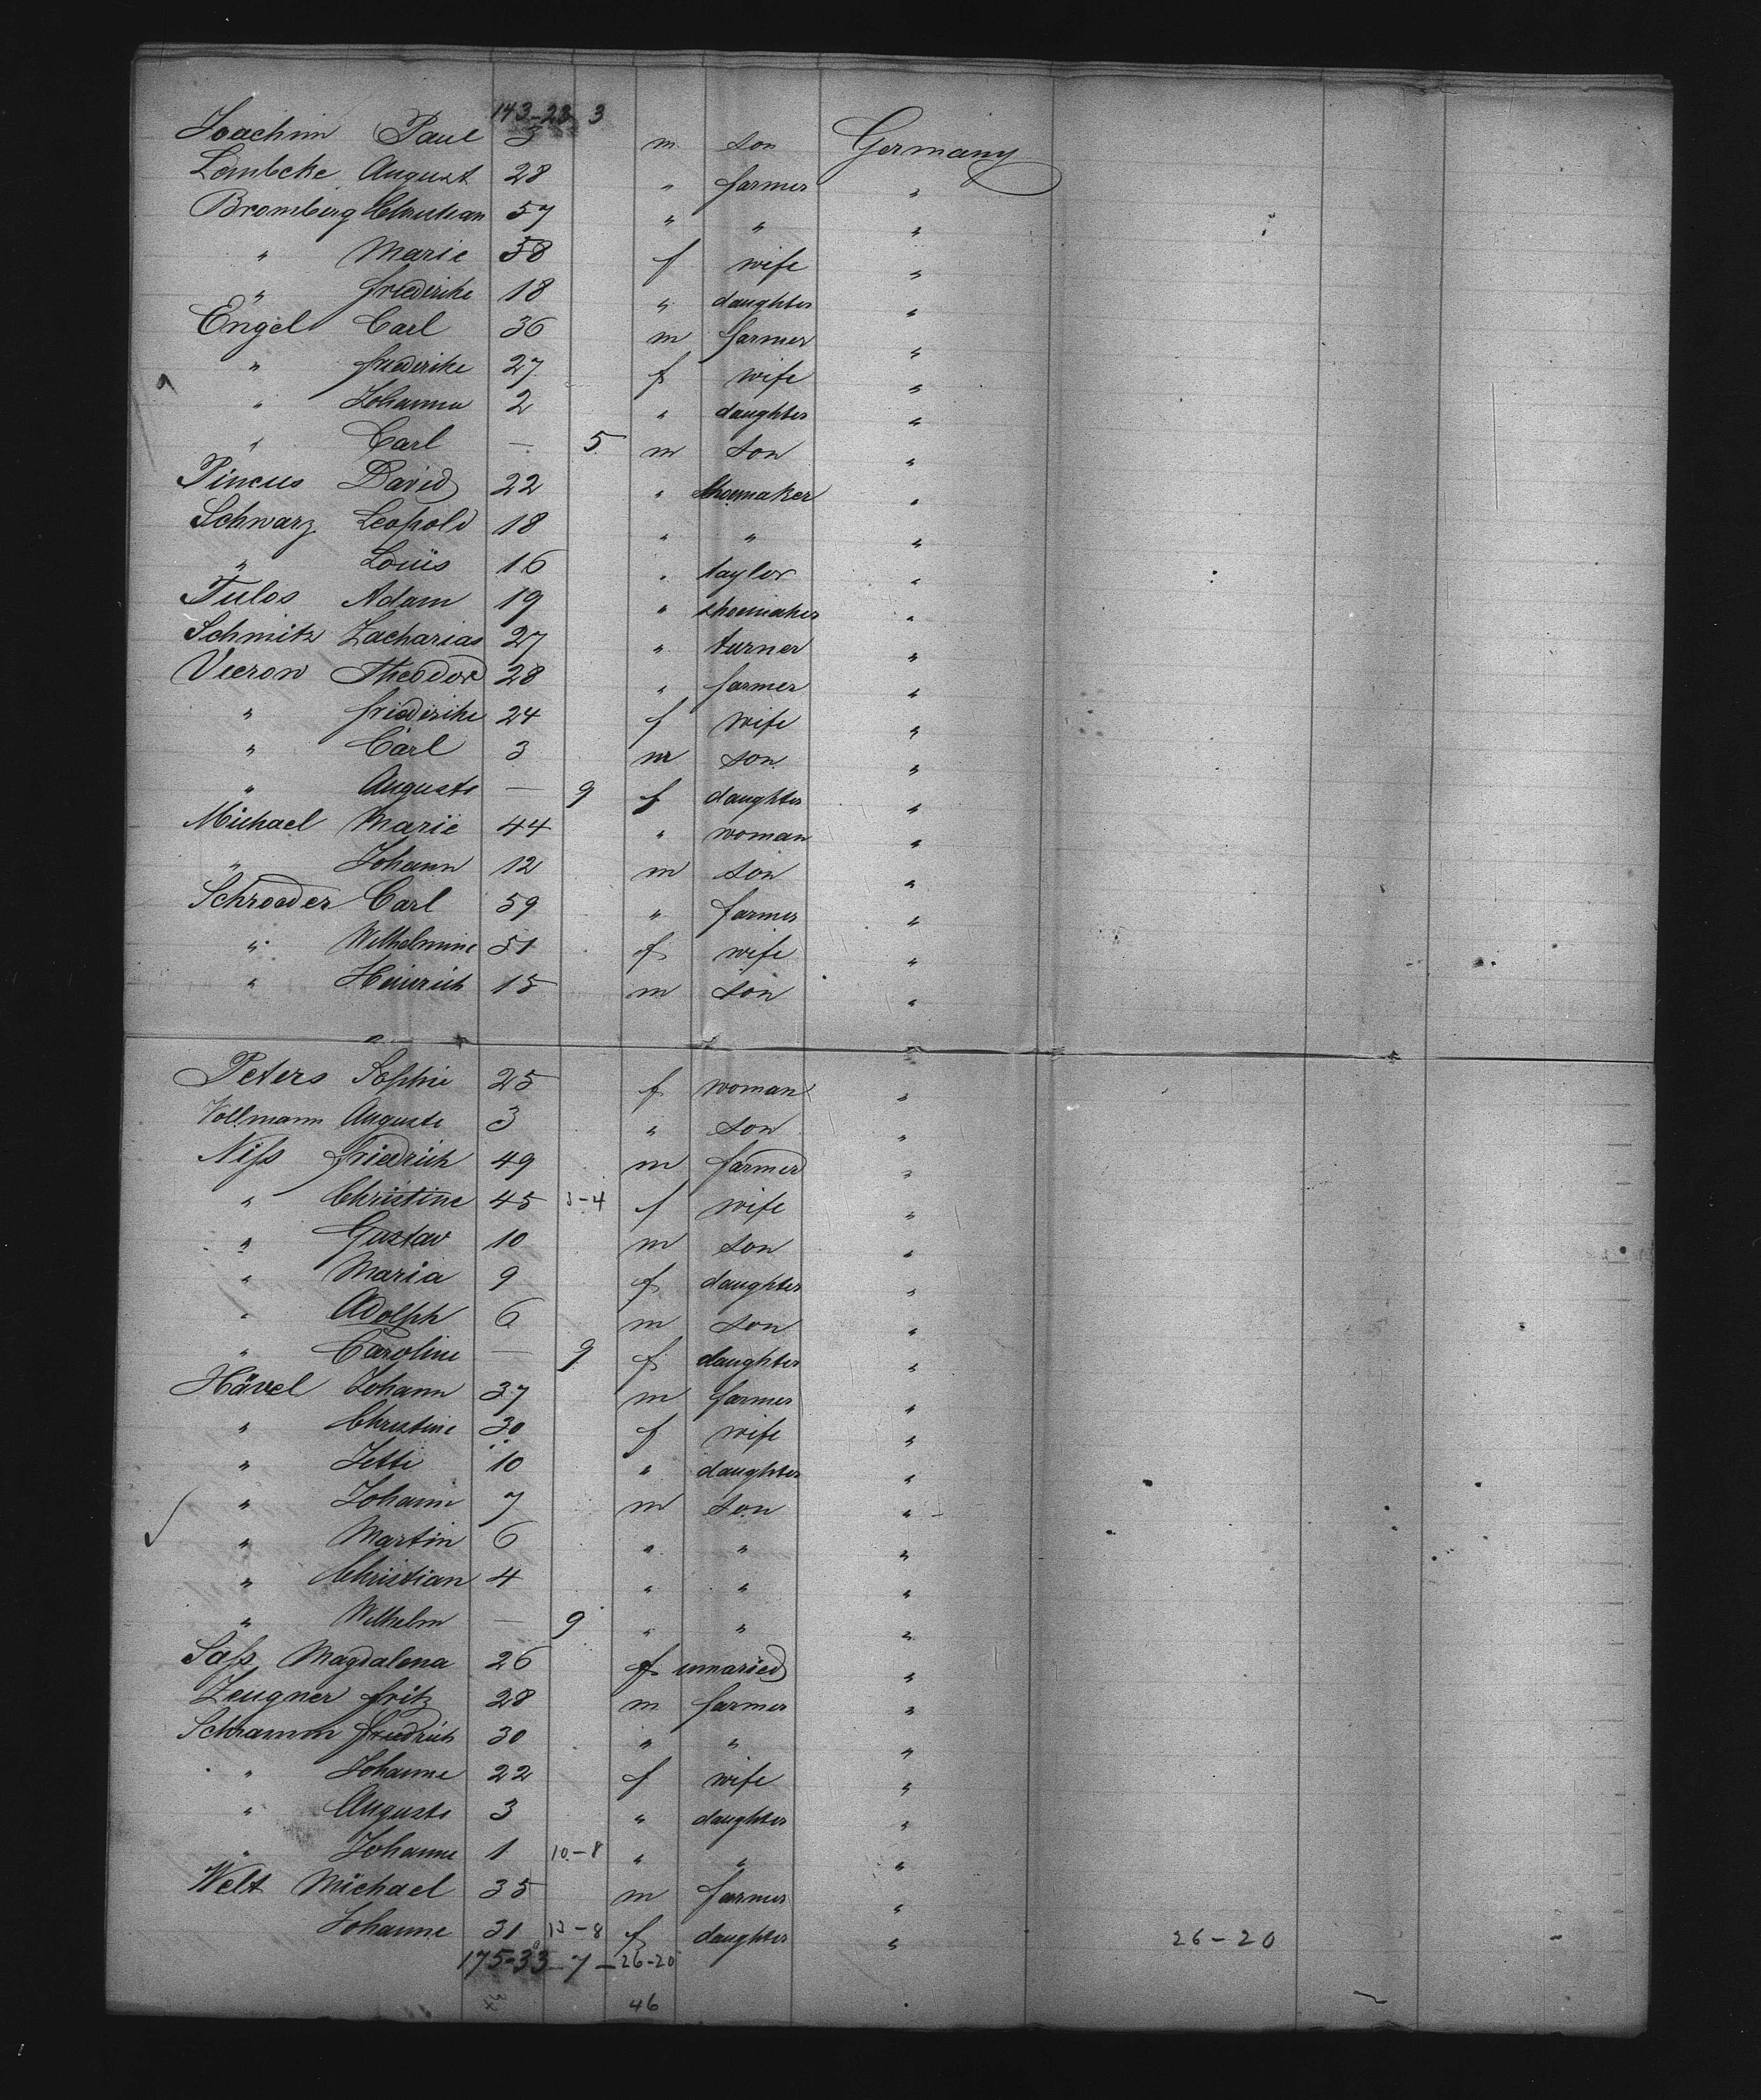 143-23 3
Joachim Paul 3 m son Germany
Lembcke August 28 " farmer "
Bromberg Christian 57 " " "
" Marie 58 f wife "
" friederike 18 " daughter "
Engel Carl 36 m farmer "
" friederike 27 f wife "
" Johanna 2 " daughter "
" Carl — 5 m son "
Pincus David 22 " shoemaker "
Schwarz Leopold 18 " " "
" Louis 16 " taylor "
Tulos Adam 19 " shoemaker "
Schmitz Zacharias 27 " turner "
Vieron Theodor 28 " farmer "
" friederike 24 f wife "
" Carl 3 m son "
" Auguste — 9 f daughter "
Michael Marie 44 " woman "
" Johann 12 m son "
Schroeder Carl 59 " farmer "
" Wilhelmine 51 f wife "
" Heinrich 15 m son "
Peters Sophie 25 f woman "
Vollmann Auguste 3 " son "
Niss friedrich 49 m farmer "
" Christine 45 3-4 f wife "
" Gustav 10 m son "
" Maria 9 f daughter "
" Adolph 6 m son "
" Caroline — 9 f daughter "
Hävel Johann 37 m farmer "
" Christine 30 f wife "
" Jette 10 " daughter "
" Johann 7 m son "
" Martin 6 " " "
" Christian 4 " " "
" Wilhelm — 9 " " "
Sass Magdalena 26 f unmaried "
Zeugner fritz 28 m farmer "
Schramm friedrich 30 " " "
" Johanne 22 f wife "
" Auguste 3 " daughter "
" Johanne 1 10-8 " " "
Welt Michael 35 m farmer "
Johanne 31 13-8 f daughter " 26-20
175-33-7-26-20
46